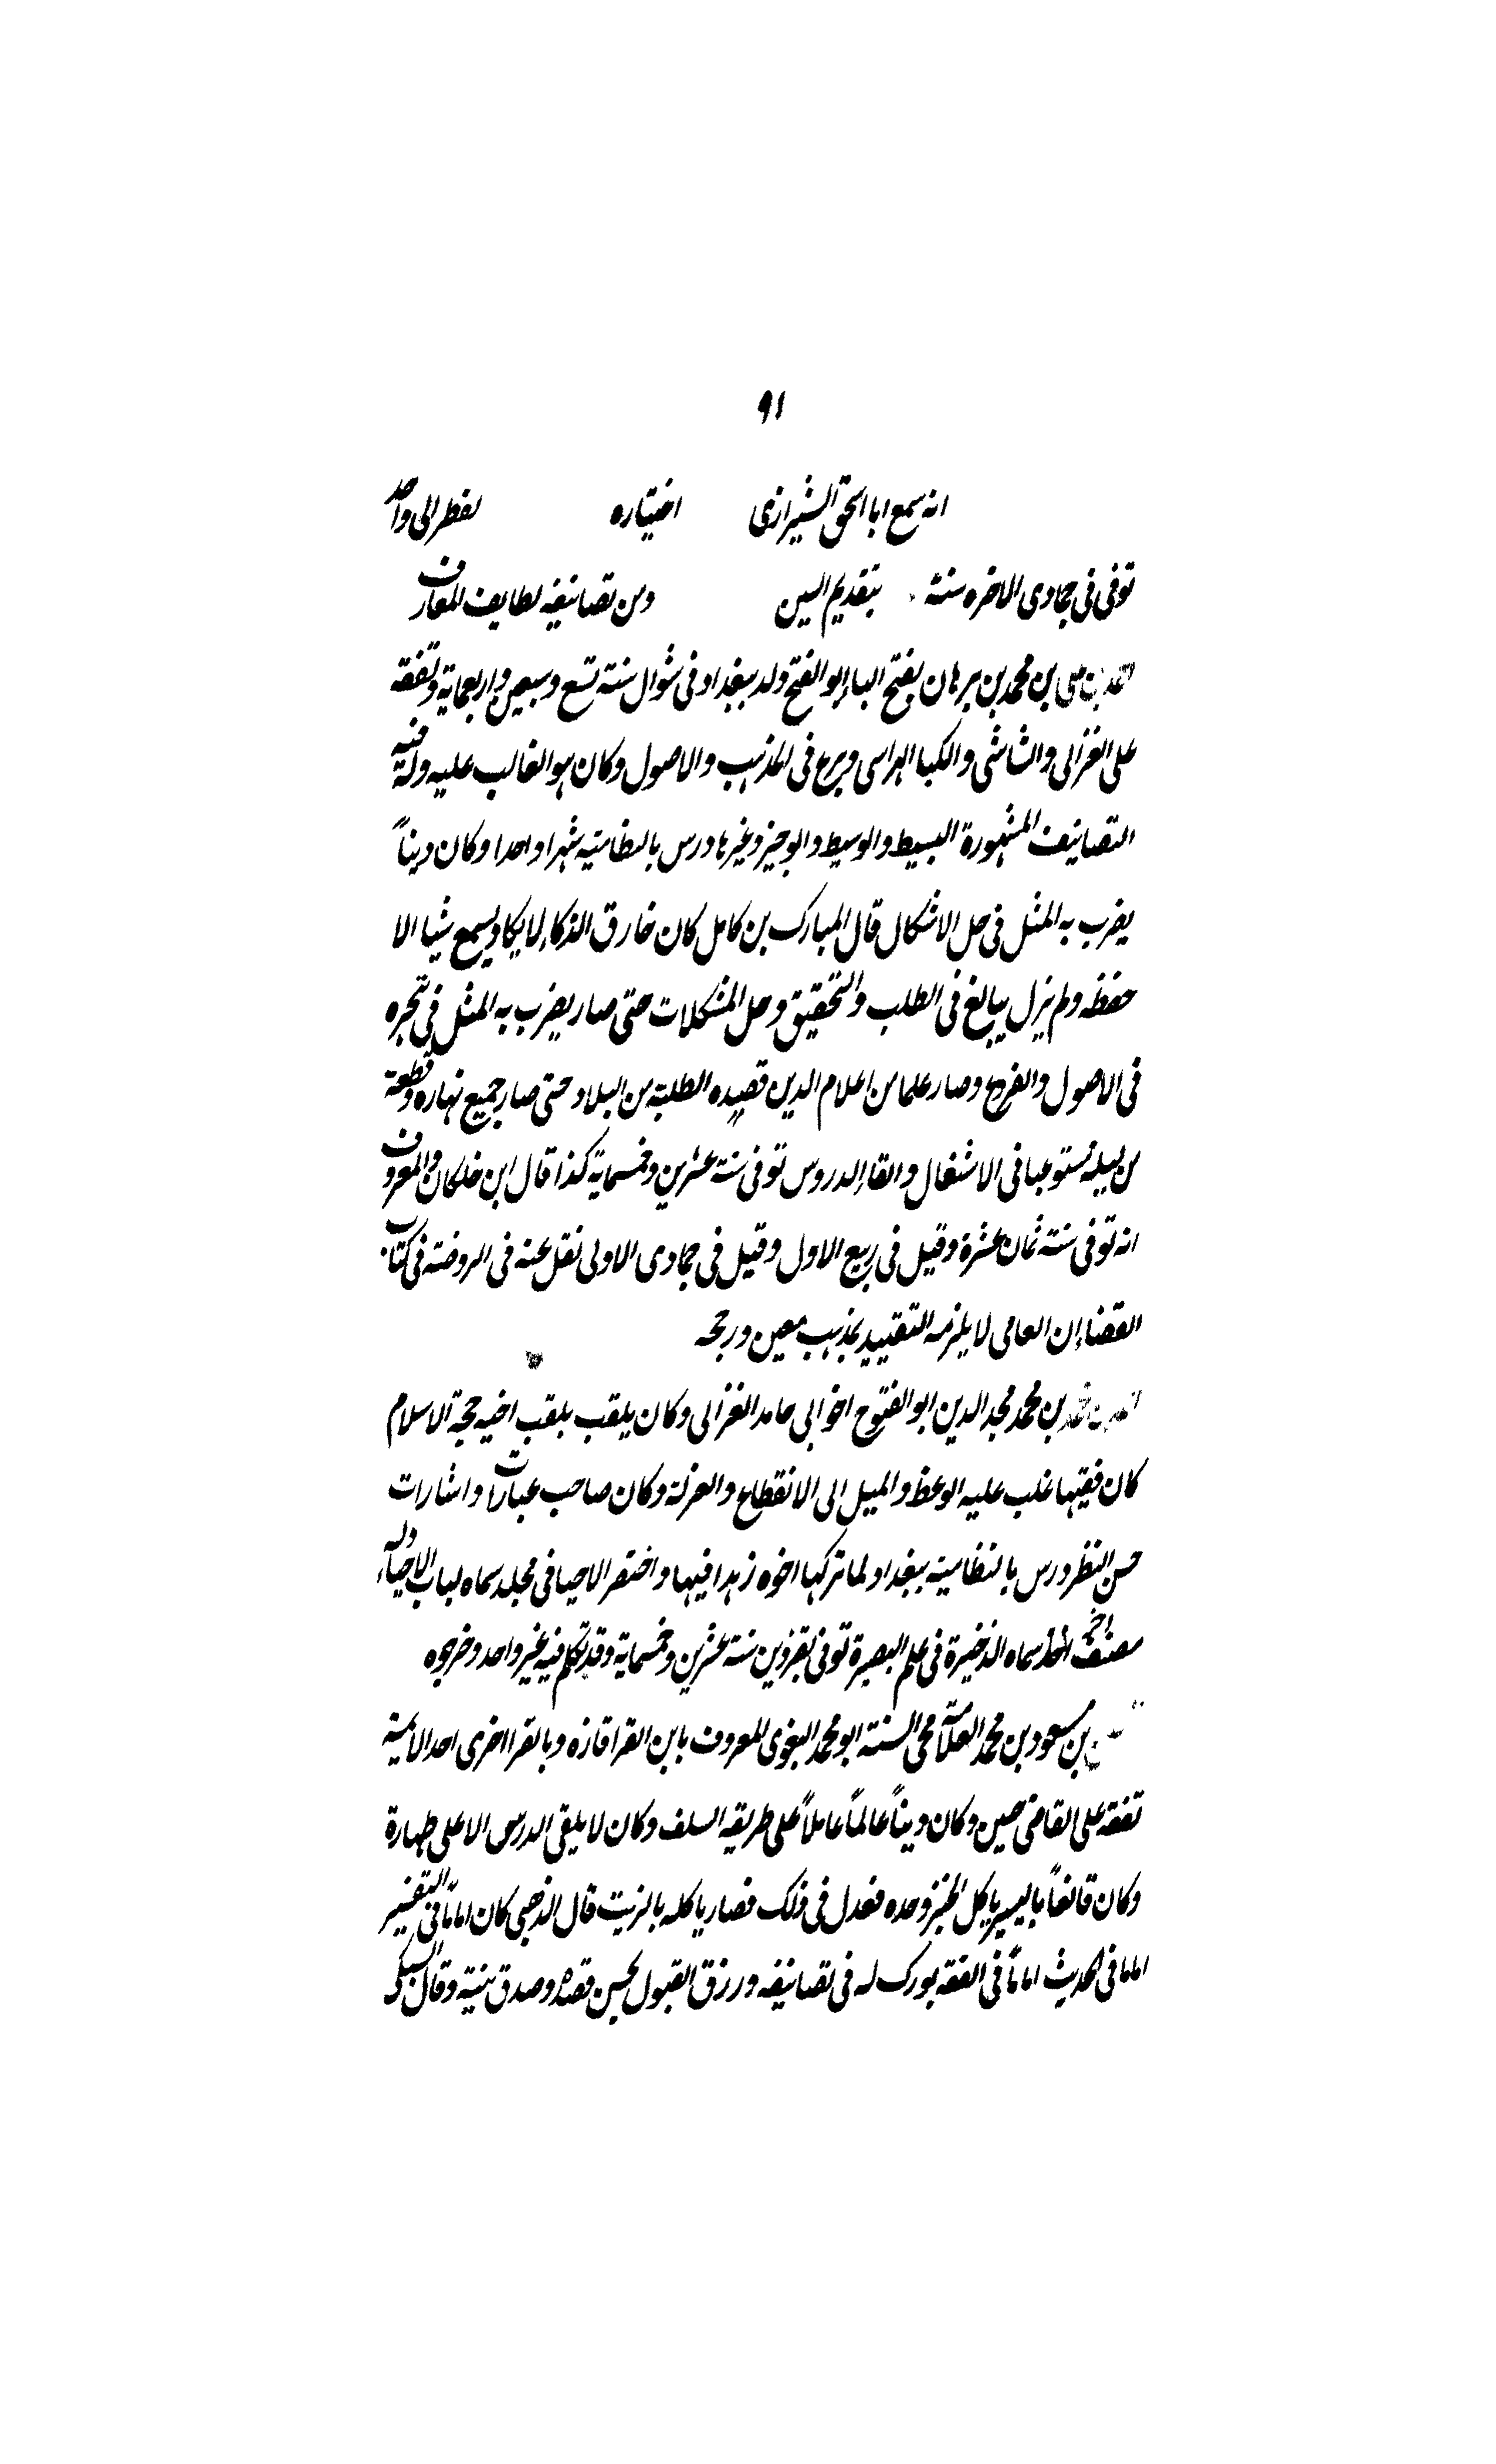 ٩١
انه سمع ابا اسحق الشيرازى اختياره لفطر الى واحد
توفى فى جمادى الاخره سنة بتقديم السين ومن تصانيفه لطايف المعارف
بن محمد بن برهان بفتح الباء ابو الفتح ولد ببغداد فى شوال سنة تسع وسبعين واربعماية وتفقه
على الغزالى والشاشى والكيا الهراسى وبرع فى المذهب والاصول وكان هو الغالب عليه وله فيه
التصانيف المشهورة البسيط والوسيط والوجيز وغيرها درس بالنظامية شهرا واحدا وكان ديناً
يضرب به المثل فى حل الاشكال قال المبارك بن كامل كان خارق الذكاء لا يكاد يسمع شيا الا
حفظه ولم يزل يبالغ فى الطلب والتحقيق وحل المشكلات حتى صار يضرب به المثل فى تبحره
فى الاصول والفروع وصار علما من اعلام الدين قصده الطلبة من البلاد حتى صار جميع نهاره وقطعة
من ليله مستوعبا فى الاشتغال والقاء الدروس توفى سنة عشرين وخمسماية كذا قال ابن خلكان والمعروف
انه توفى سنة ثمان عشرة وقيل فى ربيع الاول وقيل فى جمادى الاولى نقل عنه فى الروضة فى كتاب
القضاء ان العامى لا يلزمه التقييد بمذهب معين ورجحه
بن محمد مجد الدين ابو الفتوح اخو ابى حامد الغزالى وكان يلقب بلقب اخيه حجة الاسلام
كان فقيها غلب عليه الوعظ والميل الى الانقطاع والعزلة وكان صاحب عبارات واشارات
حسن النظر درس بالنظامية ببغداد لما تركها اخوه زهدا فيها واختصر الاحيا فى مجلد سماه لباب الاحياء وله
مصنف اخر سماه الذخيرة فى علم البصيرة توفى بقزوين سنة عشرين وخمسماية وقد تكلم فيه غير واحد وخرجوه
بن مسعود بن محمد العلامة محى السنة ابو محمد البغوى المعروف بابن الفرا قازه وبالفرا اخرى احد الائمة
تفقه على القاضى حسين وكان ديناً عالماً عاملاً على طريقه السلف وكان لا يلقى الدرس الا على طهارة
وكان قانعاً باليسير ياكل الخبز وحده فعدل فى ذلك فصار ياكله بالزيت قال الذهبى كان اماماً فى التفسير
اماما فى الحديث اماماً فى الفقه بورك له فى تصانيفه ورزق القبول لحسن قصده وصدق نيته وقال السبكى